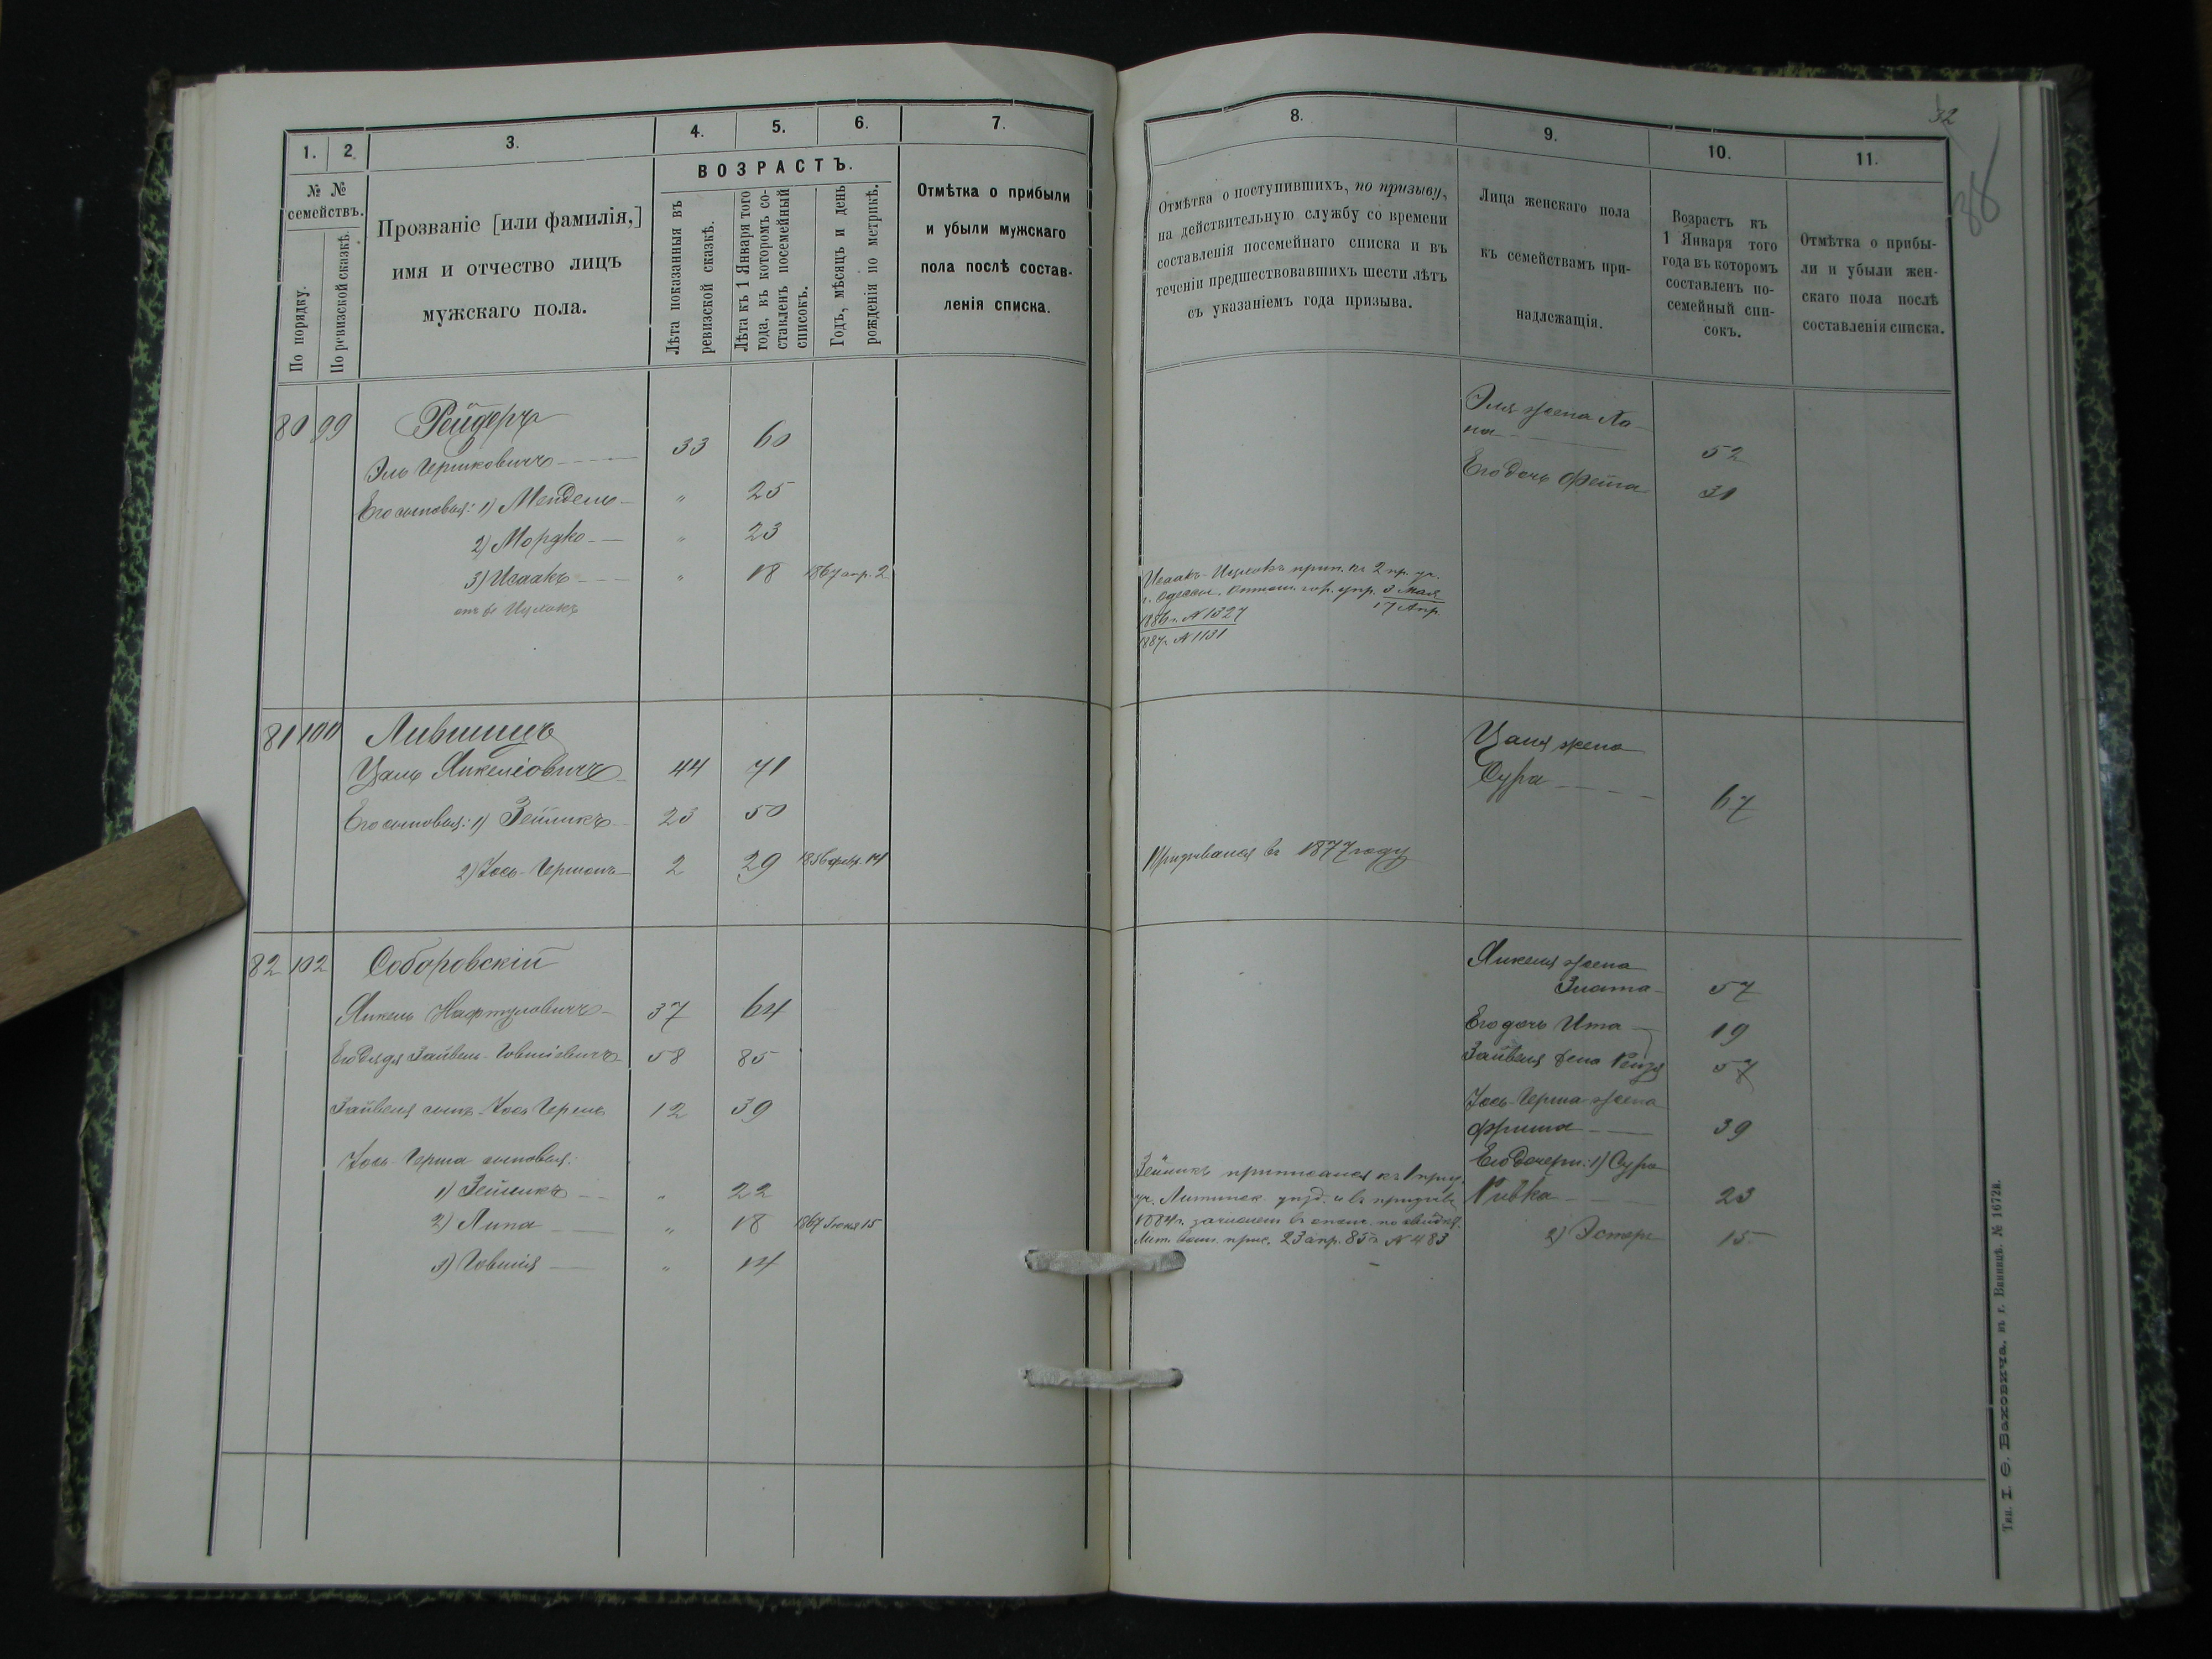 1.
2.
3.
4.
5.
6.
7.
№ №
семействъ.
По порядку.
По ревизской сказкѣ.
Прозваніе [или фамилія,]
имя и отчество лицъ
мужскаго пола.
ВОЗРАСТЪ.
Лѣта показанныя въ
ревизской сказкѣ.
Лѣта къ 1 Января того
года, въ которомъ со-
ставленъ посемейный
списокъ.
Годъ, мѣсяцъ и день
рожденія по метрикѣ.
Отмѣтка о прибыли
и убыли мужскаго
пола послѣ состав-
ленія списка.
80 99 Рейдеръ
Эль Гершковичъ 33 60
Его сыновья: 1) Мендель " 25
2) Мордко " 23
3) Исаакъ " 18 1867 апр. 2
онъ же Ицлокъ
81 100 Лившицъ
Цаль Янкеліовичъ 44 71
Его сыновья: 1) Зейликъ 23 50
2) Іось-Гершонъ 2 29 1856 февр. 14
82 102 Соборовскій
Янкель Нафтуловичъ 37 64
Его дядя Зайвель-Говшіевичъ 58 85
Зайвеля сынъ Іось Гершъ 12 39
Іось-Герша сыновья:
1) Зейликъ " 22
2) Липа " 18 1867 Іюня 15
3) Говшія " 14
32
38
8.
9.
10.
11.
Отмѣтка о поступившихъ, по призыву,
на дѣйствительную службу со времени
составленія посемейнаго списка и въ
теченіи предшествовавшихъ шести лѣтъ
съ указаніемъ года призыва.
Лица женскаго пола
къ семействамъ при-
надлежащія.
Возрастъ къ
1 Января того
года въ которомъ
составленъ по-
семейный спи-
сокъ.
Отмѣтка о прибы-
ли и убыли жен-
скаго пола послѣ
составленія списка.
Эля жена Ха-
на 52
Его дочь Фейга 31
Исаакъ-Ицлокъ прип. къ 2 пр. уч.
г. Одессы. гор. упр. 3 Мая
17 Апр.
1886 г. № 1327
1887 г. № 1131
Цаля жена
Сура 67
Призывался въ 1877 году
Янкеля жена
Злата 57
Его дочь Ита 19
Зайвеля жена Рейзя 57
Іось-Герша жена
Фрима 39
Его дочери: 1) Сура
Ривка 23
2) Эстеръ 15
Зейликъ приписался къ 1 приз.
уч. Литинск. уѣзд. и въ призывъ
1884 г. зачисленъ въ ополч. по свидѣт.
Лит. воин. прис. 23 апр. 85 г. № 483
Тип. І. Ѳ. Баховича, въ г. Винницѣ. № 1672й.